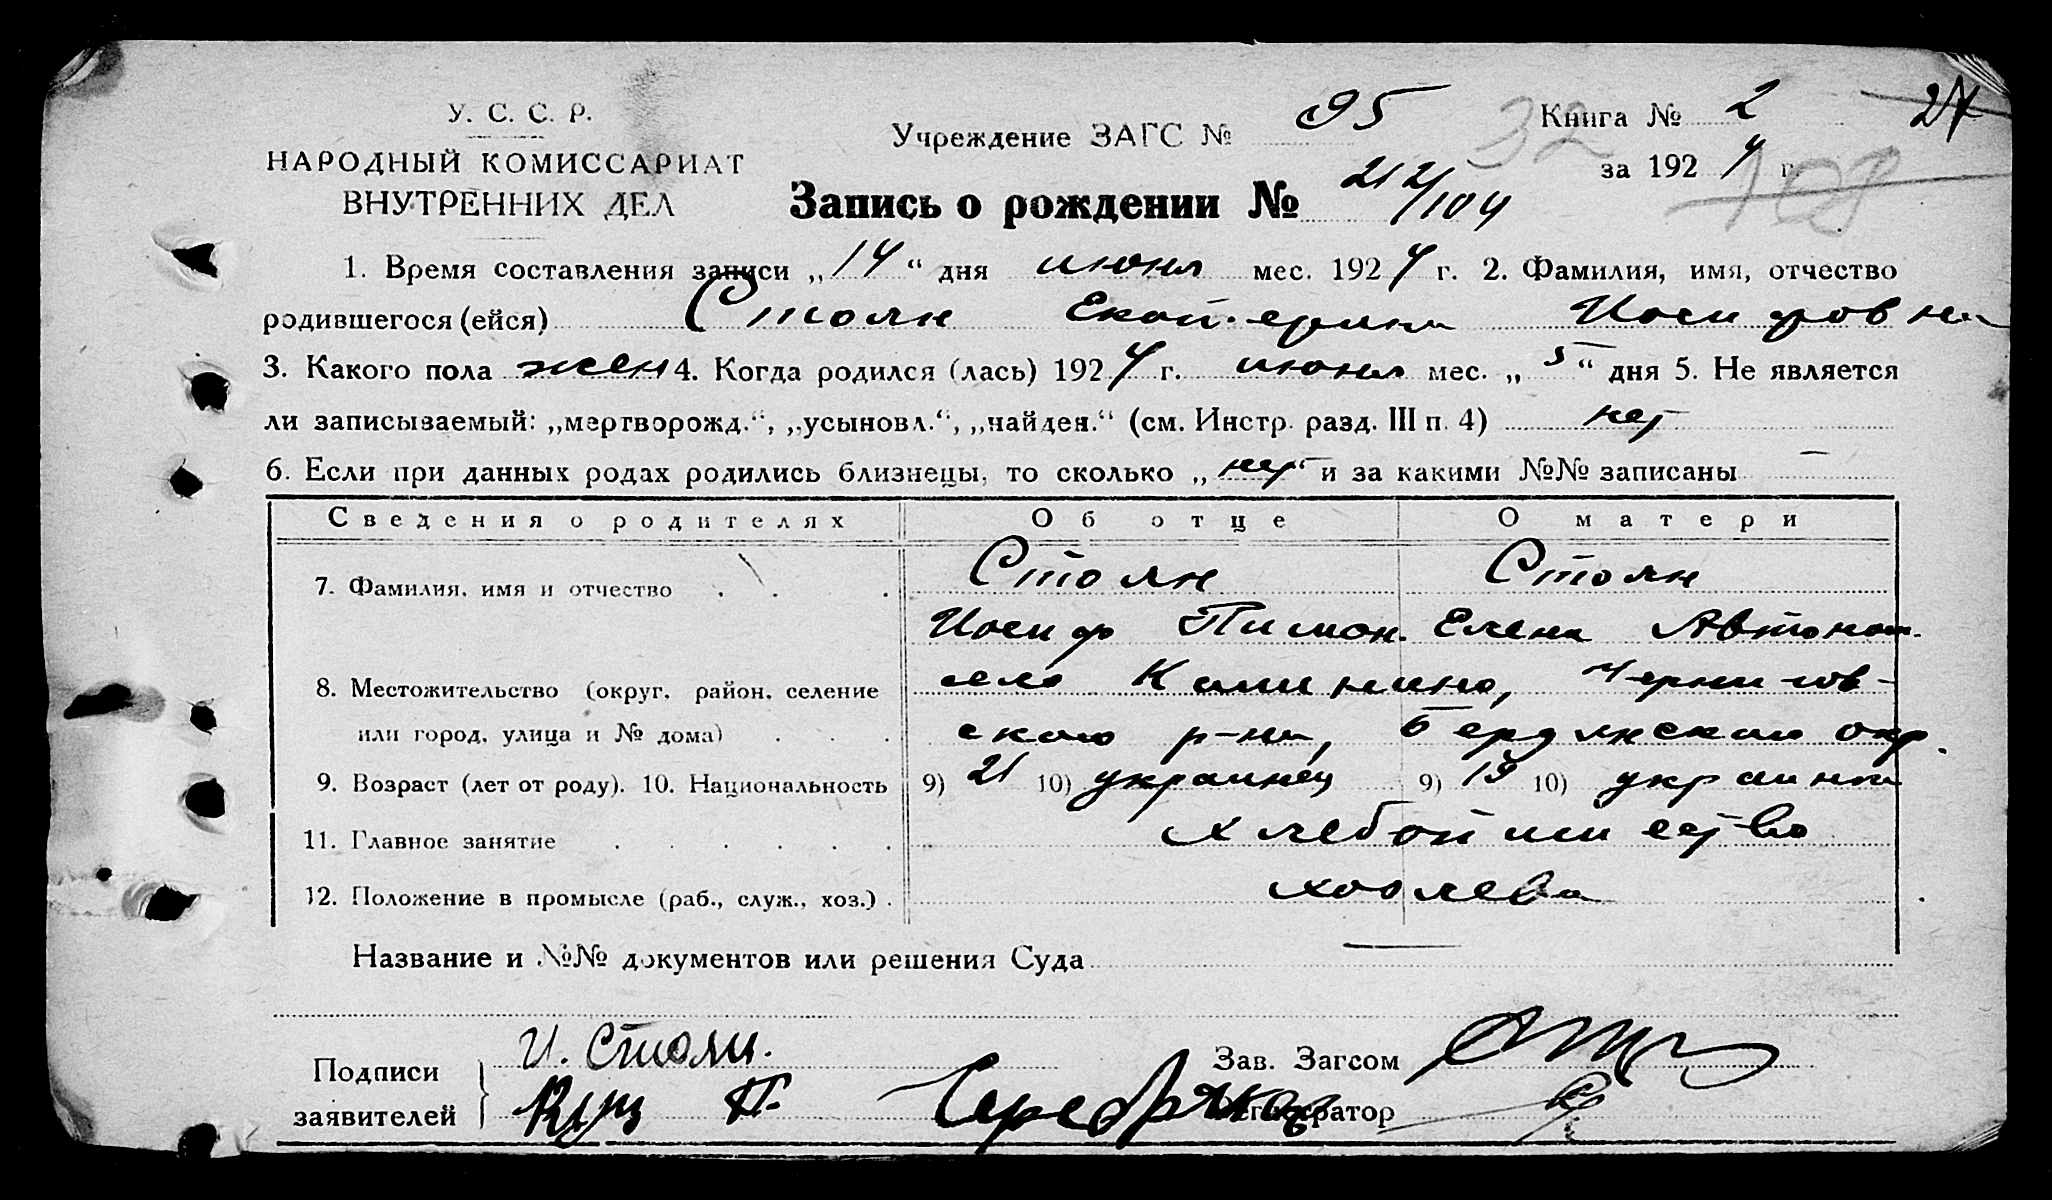 У. С. С. Р.
НАРОДНЫЙ КОМИССАРИАТ
ВНУТРЕННИХ ДЕЛ
Учреждение ЗАГС № 95
Книга № 2
27
32
за 1924 г.
108
Запись о рождении № 212/104
1. Время составления записи „14“ дня июня мес. 1924 г. 2. Фамилия, имя, отчество
родившегося (ейся) Столн Екатерина Иосифовна
3. Какого пола жен 4. Когда родился (лась) 1924 г. июня мес. „5“ дня 5. Не является
ли записываемый: „мертворожд.“, „усыновл.“, „найден.“ (см. Инстр. разд. III п. 4) нет
6. Если при данных родах родились близнецы, то сколько „нет“ и за какими №№ записаны —
Сведения о родителях Об отце О матери
7. Фамилия, имя и отчество Стоян Стоян
Иосиф Пимон. Елена Автоном.
8. Местожительство (округ, район, селение село Калинино, Чернигов-
или город, улица и № дома) ского р-на, Бердянской окр.
9. Возраст (лет от роду). 10. Национальность 9) 21 10) украинец 9) 19 10) украинка
11. Главное занятие хлебопашество
12. Положение в промысле (раб., служ., хоз.)
Название и №№ документов или решения Суда —
Подписи заявителей И. Стоян.
Зав. Загсом
Регистратор